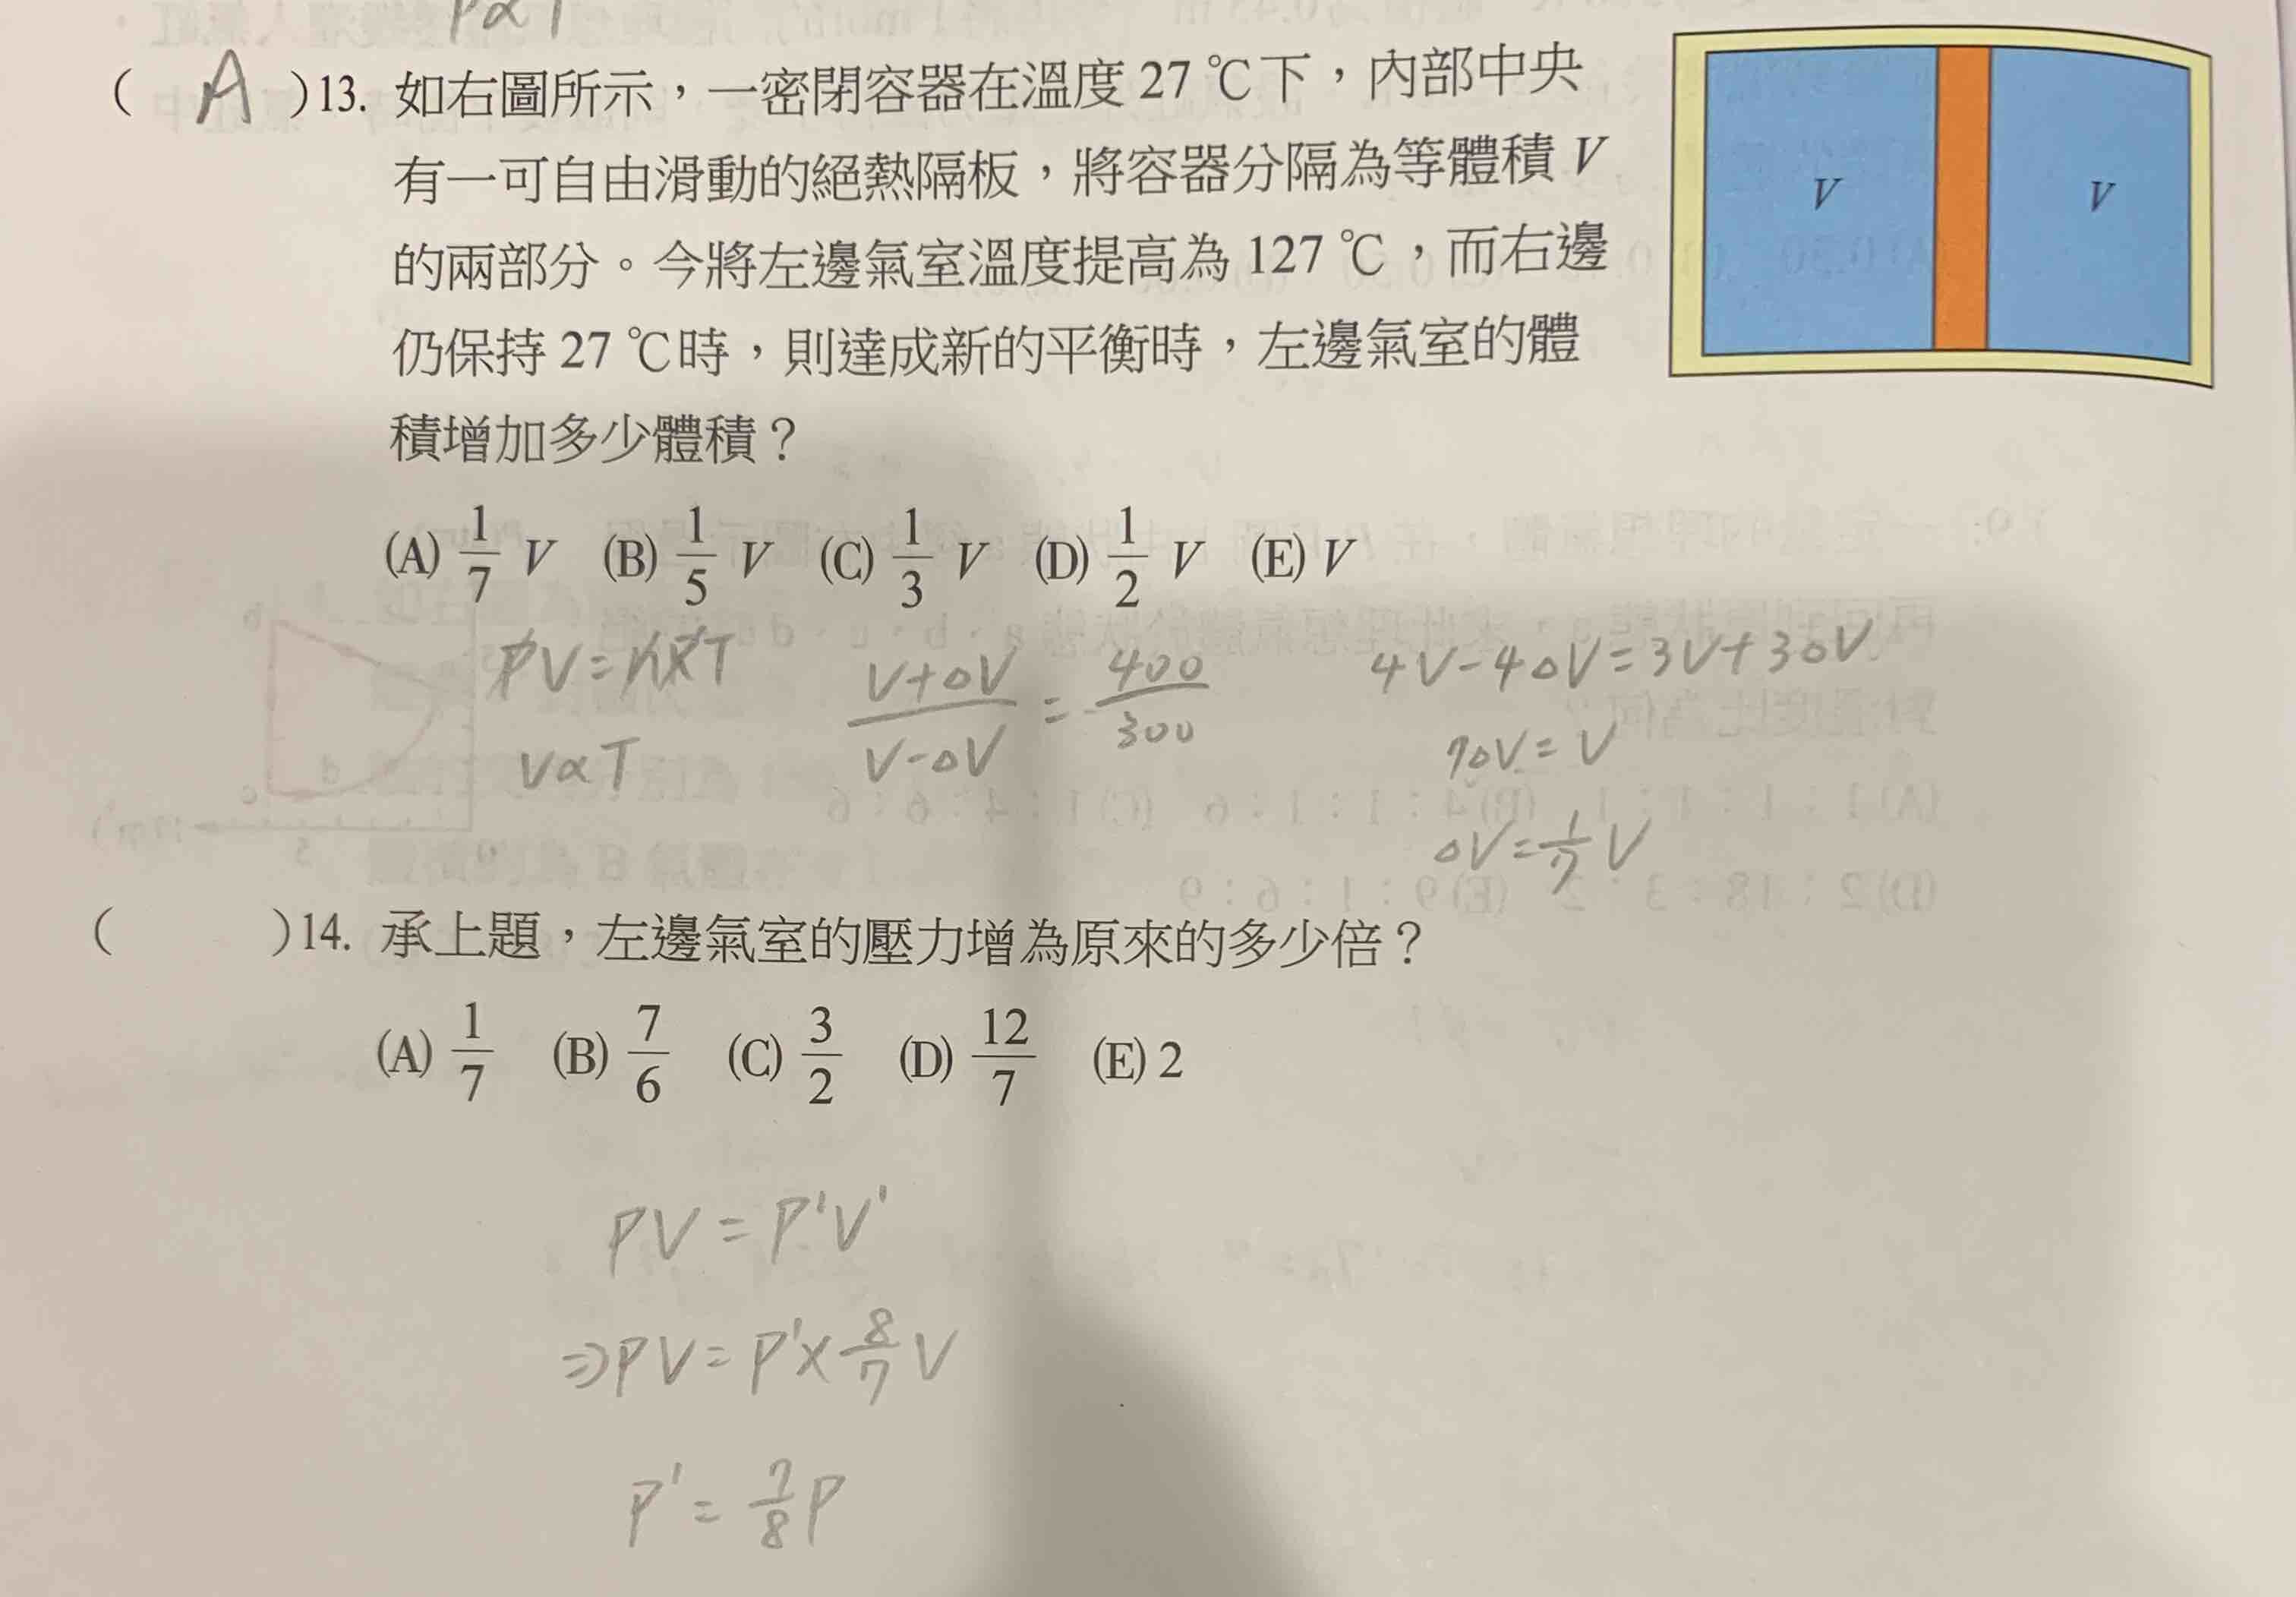 P∝T
( A )13. 如右圖所示，一密閉容器在溫度 27 ℃下，內部中央
有一可自由滑動的絕熱隔板，將容器分隔為等體積 V
的兩部分。今將左邊氣室溫度提高為 127 ℃，而右邊
仍保持 27 ℃時，則達成新的平衡時，左邊氣室的體
積增加多少體積？
V V
(A) 1/7 V (B) 1/5 V (C) 1/3 V (D) 1/2 V (E) V
PV=nRT
V∝T
(V+ΔV)/(V-ΔV) = 400/300
4V-4ΔV=3V+3ΔV
7ΔV=V
ΔV=1/7 V
( )14. 承上題，左邊氣室的壓力增為原來的多少倍？
(A) 1/7 (B) 7/6 (C) 3/2 (D) 12/7 (E) 2
PV=P'V'
⇒PV=P'×8/7 V
P'=7/8 P